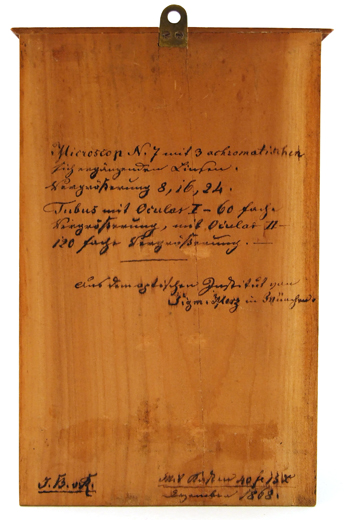 Microscop N. 7 mit 3 achromatischen
sich ergänzenden Linsen.
Vergrößerung 8, 16, 24.
Tubus mit Ocular I – 60 fache
Vergrößerung, mit Ocular II –
120 fache Vergrößerung. –
Aus dem optischen Institut von
Sigm. Merz in München.
J. B. v. K.
40 fl 15 x
Dezember 1868.